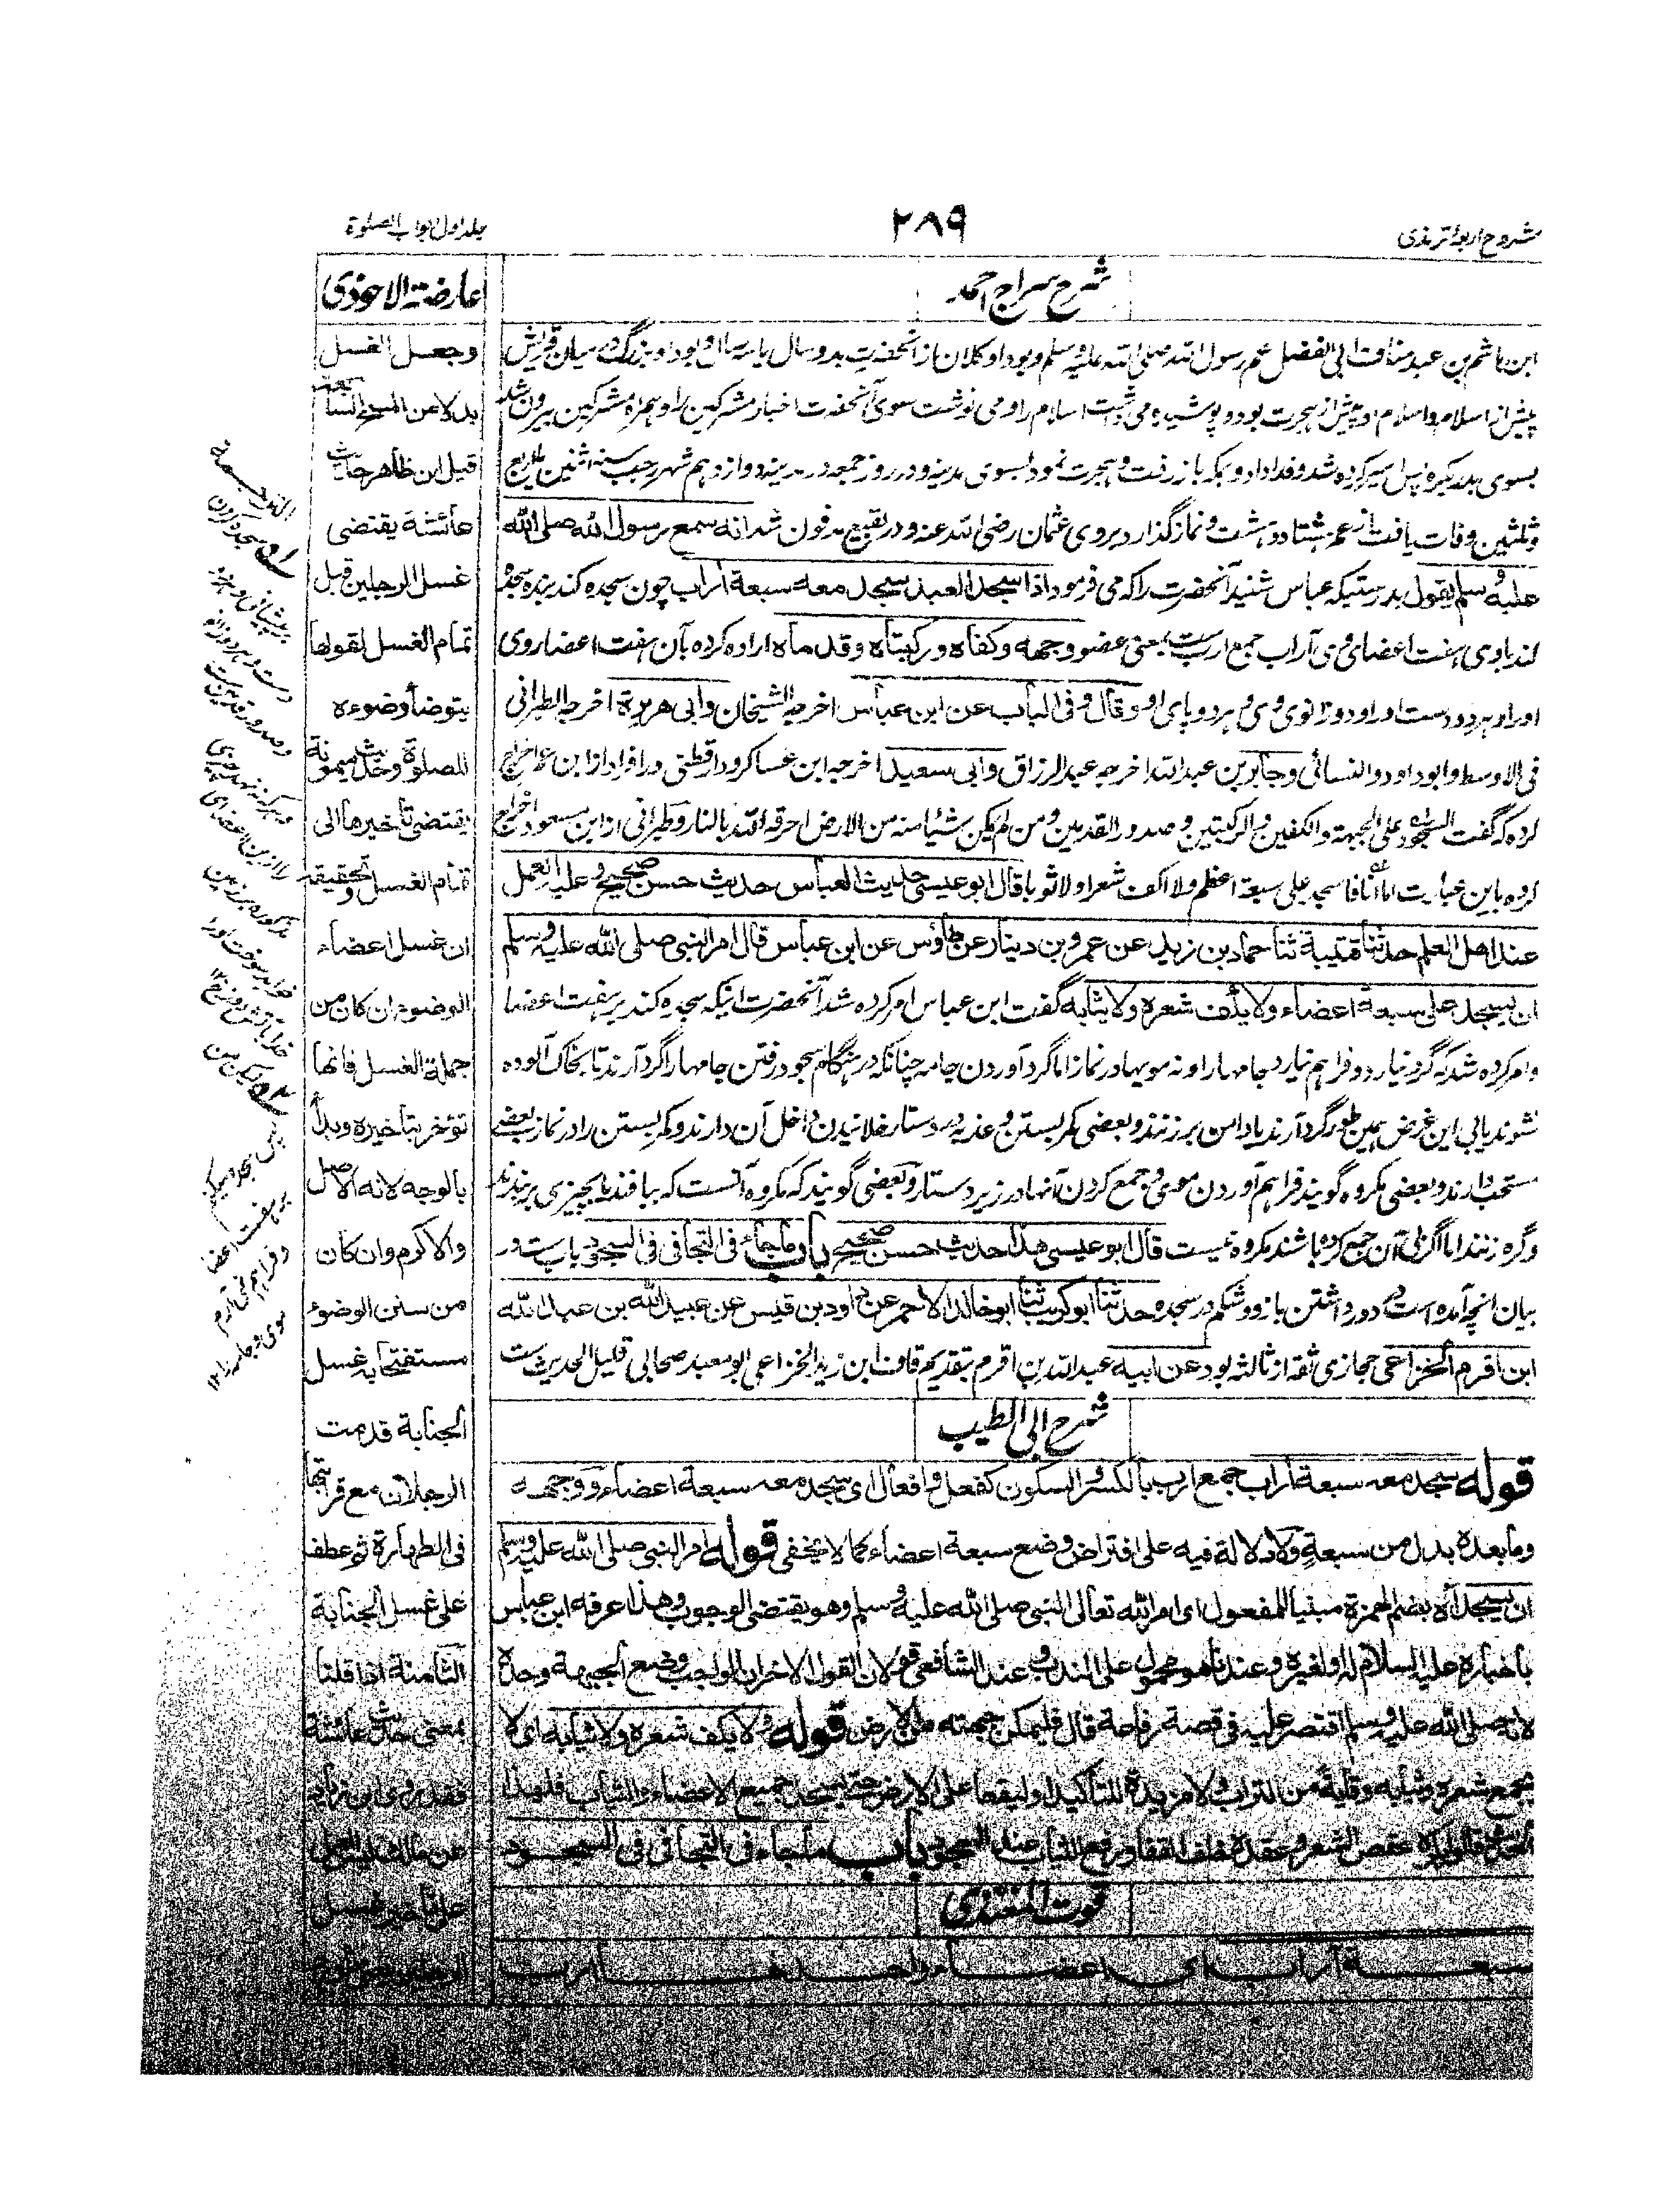 شروح اربعۂ ترمذی
۲۸۹
جلد اول ابواب الصلوة
شرح سراج احمد
ابن هاشم بن عبد مناف ابی الفضل عم رسول الله صلی الله علیه وسلم وبود او کلان از آنحضرت بدو سال یا سه سال و بود او بزرگ در میان قریش
پیش از اسلام و اسلام او پیش از هجرت بود و پوشیده می داشت اسلام را و می نوشت سوی آنحضرت اخبار مشرکین را و همراه مشرکین بیرون شد
بسوی بدر بکره پس اسیر کرده شد و فدا داد و بمکه باز رفت و هجرت نمود بسوی مدینه و در روز جمعه در مدینه دوازدهم شهر رجب سنه اثنین
وثلثین وفات یافت از عمر هشتاد و هشت و نماز گذارد بر وی عثمان رضی الله عنه و در بقیع مدفون شد انه سمع رسول الله صلى الله
عليه وسلم يقول بدرستیکه عباس شنید آنحضرت را که می فرمود اذا سجد العبد سجد معه سبعة آراب چون سجده کند بنده سجده
کند باوی هفت اعضای وی آراب جمع ارب ست بمعنی عضو وجهه وكفاه وركبتاه وقدماه اراده کرده بآن هفت اعضا روی
او را و هر دو دست او را و دو زانوی وی و هر دو پای او وقال وفي الباب عن ابن عباس اخرجه الشيخان وابي هريرة اخرجه الطبرانی
فی الاوسط وابو داود والنسائی وجابر بن عبد الله اخرجه عبد الرزاق وابي سعيد اخرجه ابن عساکر ودارقطنی در افراد از ابن عمر اخراج
کرده که گفت السجود علی الجبهة والكفین والرکبتین وصدور القدمین ومن لم یکن شیئا منه من الارض احرقه الله بالنار وطبرانی از ابن مسعود اخراج
کرده باین عبارت اما انا فاسجد علی سبعة اعظم ولا اكف شعرا ولا ثوبا قال ابو عيسى حديث العباس حديث حسن صحيح وعليه العمل
عند اهل العلم حدثنا قتيبة ثنا حماد بن زيد عن عمرو بن دينار عن طاؤس عن ابن عباس قال امر النبي صلى الله عليه وسلم
ان يسجد على سبعة اعضاء ولا يكف شعره ولا ثيابه گفت ابن عباس امر کرده شد آنحضرت اینکه سجده کند بر هفت اعضا
وامر کرده شد که گرد نیارد و فراهم نیارد جامها را و نه مویها در نماز اما گرد آوردن جامه چنانکه در هنگام سجود رفتن جامها را گرد آرند تا بخاک آلوده
نشوند یا بی این غرض همین طور گرد آرند یا دامن بر زنند و بعضی کمر بستن و عذبه در دستار خلانیدن داخل آن دارند و کمر بستن را در نماز بعضی
مستحب دارند و بعضی مکروه گویند فراهم آوردن موی و جمع کردن آنها در زیر دستار و بعضی گویند که مکروه آنست که ببافند یا بچیزی بربندند
وگره زنند اما اگر بی آن جمع کرده باشند مکروه نیست قال ابو عيسى هذا حديث حسن صحيح باب ما جاء في التجافي في السجود باب ست در
بیان آنچه آمده است در دور داشتن بازو و شکم در سجده حدثنا ابو كريب ثنا ابو خالد الاحمر عن داود بن قيس عن عبيد الله بن عبد الله
ابن اقرم الخزاعی حجازی ثقه از ثالثه بود عن ابيه عبد الله بن اقرم بتقدیم قاف ابن زید الخزاعی ابو معبد صحابی قلیل الحدیث ست
شرح ابی الطیب
قوله سجد معه سبعة آراب جمع ارب بالكسر والسكون كفعل وافعال اى سجد معه سبعة اعضاء ووجهه
وما بعده بدل من سبعة ولا دلالة فيه على افتراض وضع سبعة اعضاء كما لا يخفى قوله امر النبي صلى الله عليه وسلم
ان يسجد آه بضم الهمزة مبنيا للمفعول اى امر الله تعالى النبي صلى الله عليه وسلم وهو يقتضى الوجوب وهذا عرفه ابن عباس
باخباره عليه السلام له او لغيره وعندنا هو محمول على الندب وعند الشافعي قولان القول الآخر ان الواجب وضع الجبهة وحده
لانه صلى الله عليه وسلم اقتصر عليه في قصة رفاعة قال فليمكن جبهته من الارض قوله ولا يكف شعره ولا ثيابه اى لا
يجمع شعره وثيابه وقاية من التراب ولا مزيدة للتأكيد او ليقعا على الارض حتى يسجد جميع الاعضاء والثياب فلهذا
الحديث قالوا يكره عقص الشعر وعقده خلف القفا ورفع الثياب عند السجود باب ما جاء في التجافي في السجود
قوت المغتذی
سبعة آراب اى اعضاء واحدها ارب
عارضة الاحوذی
وجعل الغسل
بدلا من المسح
قيل ان ظاهر حديث
عائشة يقتضى
غسل الرجلين قبل
تمام الغسل لقولها
يتوضأ وضوءه
للصلوة وحديث ميمونة
يقتضى تأخيرها الى
تمام الغسل وتحقيقه
ان غسل اعضاء
الوضوء ان كان من
جملة الغسل فانها
تؤخر بتأخيره وبدأ
بالوجه لانه الاصل
والاكرم وان كان
من سنن الوضوء
مستفتحا به غسل
الجنابة قدمت
الرجلان مع قرابتها
في الطهارة ثم عطف
على غسل الجنابة
الثامنة اذا قلنا
معنى حديث عائشة
فقد روى ابن زياد
عن مالك ليس العمل
على تأخير غسل